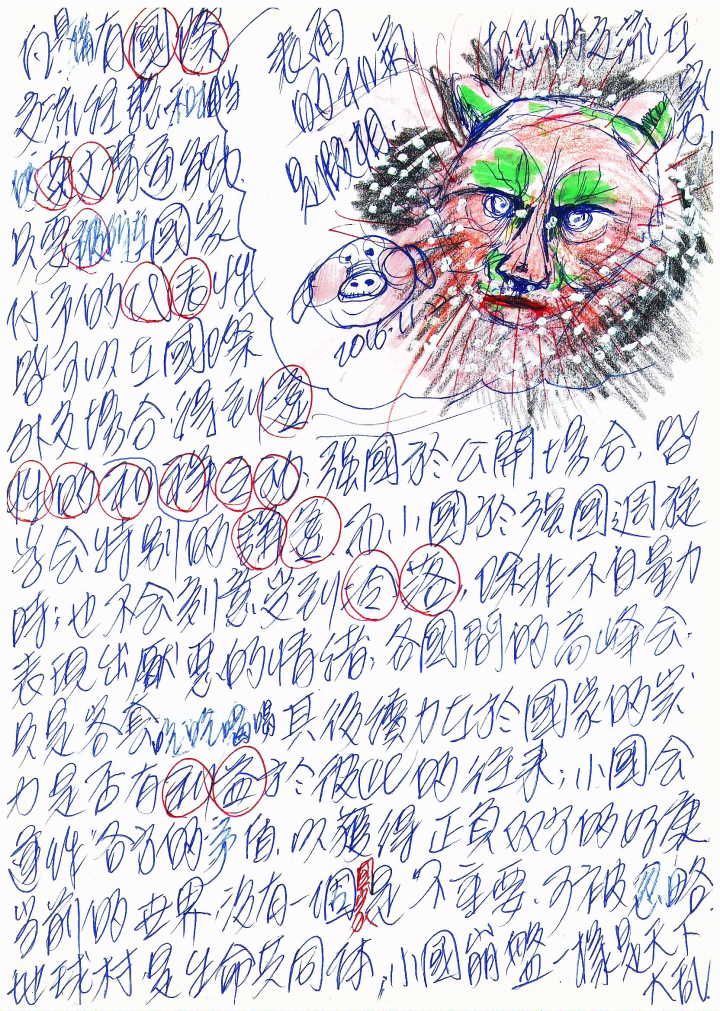 表面
的和氣
是假相.
2016.11.2
有國際
交流經驗和
英文溝通能力
只要被 國家
付予的代表性
皆可以在國際
外交場合得到善
性的和諧互動;強國於公開場合,皆
学会特別的謙虛,而小國於強國週旋
時;也不会刻意受到冷落,除非不自量力
表現出厭惡的情緒,各國間的高峰会.
只是客套吃吃喝喝其後續力在於國家的实
力是否有利益於彼此的往來;小國会
合作 的爭值,以獲得正負双方的好康
当前的世界,沒有一個是不重要,可被忽略.
地球村是生命共同体,小國崩盤一樣是天下
大亂.